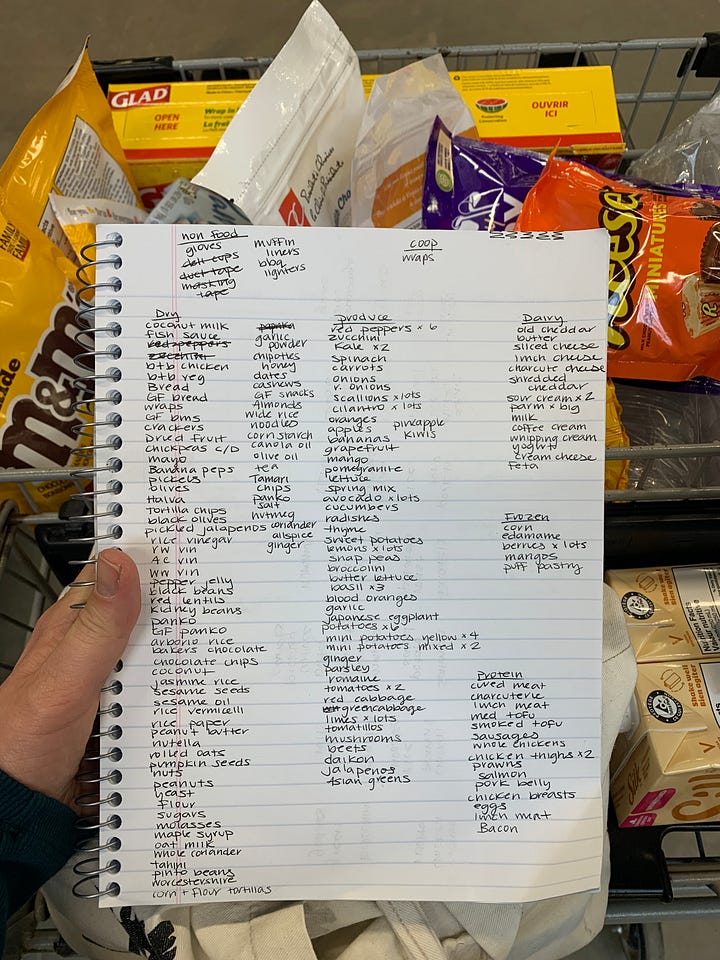 GLAD
OPEN
HERE
Wrap in
OUVRIR
ICI
President's Choice
M&M's
REESE
MINIATURES
MILK CHOCOLATE
Shake well
Bien agiter
Silk
non food
gloves
deli cups
duct tape
masking
tape
muffin
liners
bbq
lighters
coop
wraps
Dry
coconut milk
fish sauce
red peppers
zucchini
btb chicken
btb reg
Bread
GF bread
wraps
GF buns
crackers
Dried fruit
chickpeas c/D
mayo
Banana peps
pickels
olives
Halva
Tortilla chips
black olives
pickled jalapenos
rice vinegar
rw vin
ac vin
ww vin
pepper jelly
black beans
red lentils
kidney beans
panko
GF panko
arborio rice
bakers chocolate
chocolate chips
coconut
jasmine rice
sesame seeds
sesame oil
rice vermicelli
rice paper
peanut butter
nutella
rolled oats
pumpkin seeds
nuts
peanuts
yeast
flour
sugars
molasses
maple syrup
oat milk
whole coriander
tahini
pinto beans
worcestershire
corn + flour tortillas
paprika
garlic
powder
chipotles
honey
dates
cashews
GF snacks
Almonds
wide rice
noodles
cornstarch
canola oil
olive oil
tea
Tamari
chips
panko
salt
nutmeg
coriander
allspice
ginger
produce
red peppers x 6
zucchini
kale x2
spinach
carrots
onions
r. onions
scallions x lots
cilantro x lots
oranges
apples
bananas
pineapple
kiwis
grapefruit
mango
pomegranite
lettuce
spring mix
avocado x lots
cucumbers
radishes
thyme
sweet potatoes
lemons x lots
snap peas
broccolini
butter lettuce
basil x 3
blood oranges
garlic
Japanese eggplant
potatoes x6
mini potatoes yellow x 4
mini potatoes mixed x 2
ginger
parsley
romaine
tomatoes x 2
red cabbage
green cabbage
limes x lots
tomatillos
mushrooms
beets
daikon
jalapenos
Asian greens
Dairy
old cheddar
butter
sliced cheese
lunch cheese
charcute cheese
shredded
cheddar
sour cream x 2
parm x big
milk
coffee cream
whipping cream
yogurt
cream cheese
feta
Frozen
corn
edamame
berries x lots
mangos
puff pastry
Protein
cured meat
charcuterie
lunch meat
med tofu
smoked tofu
sausages
whole chickens
chicken thighs x2
prawns
salmon
pork belly
chicken breasts
eggs
lunch meat
Bacon